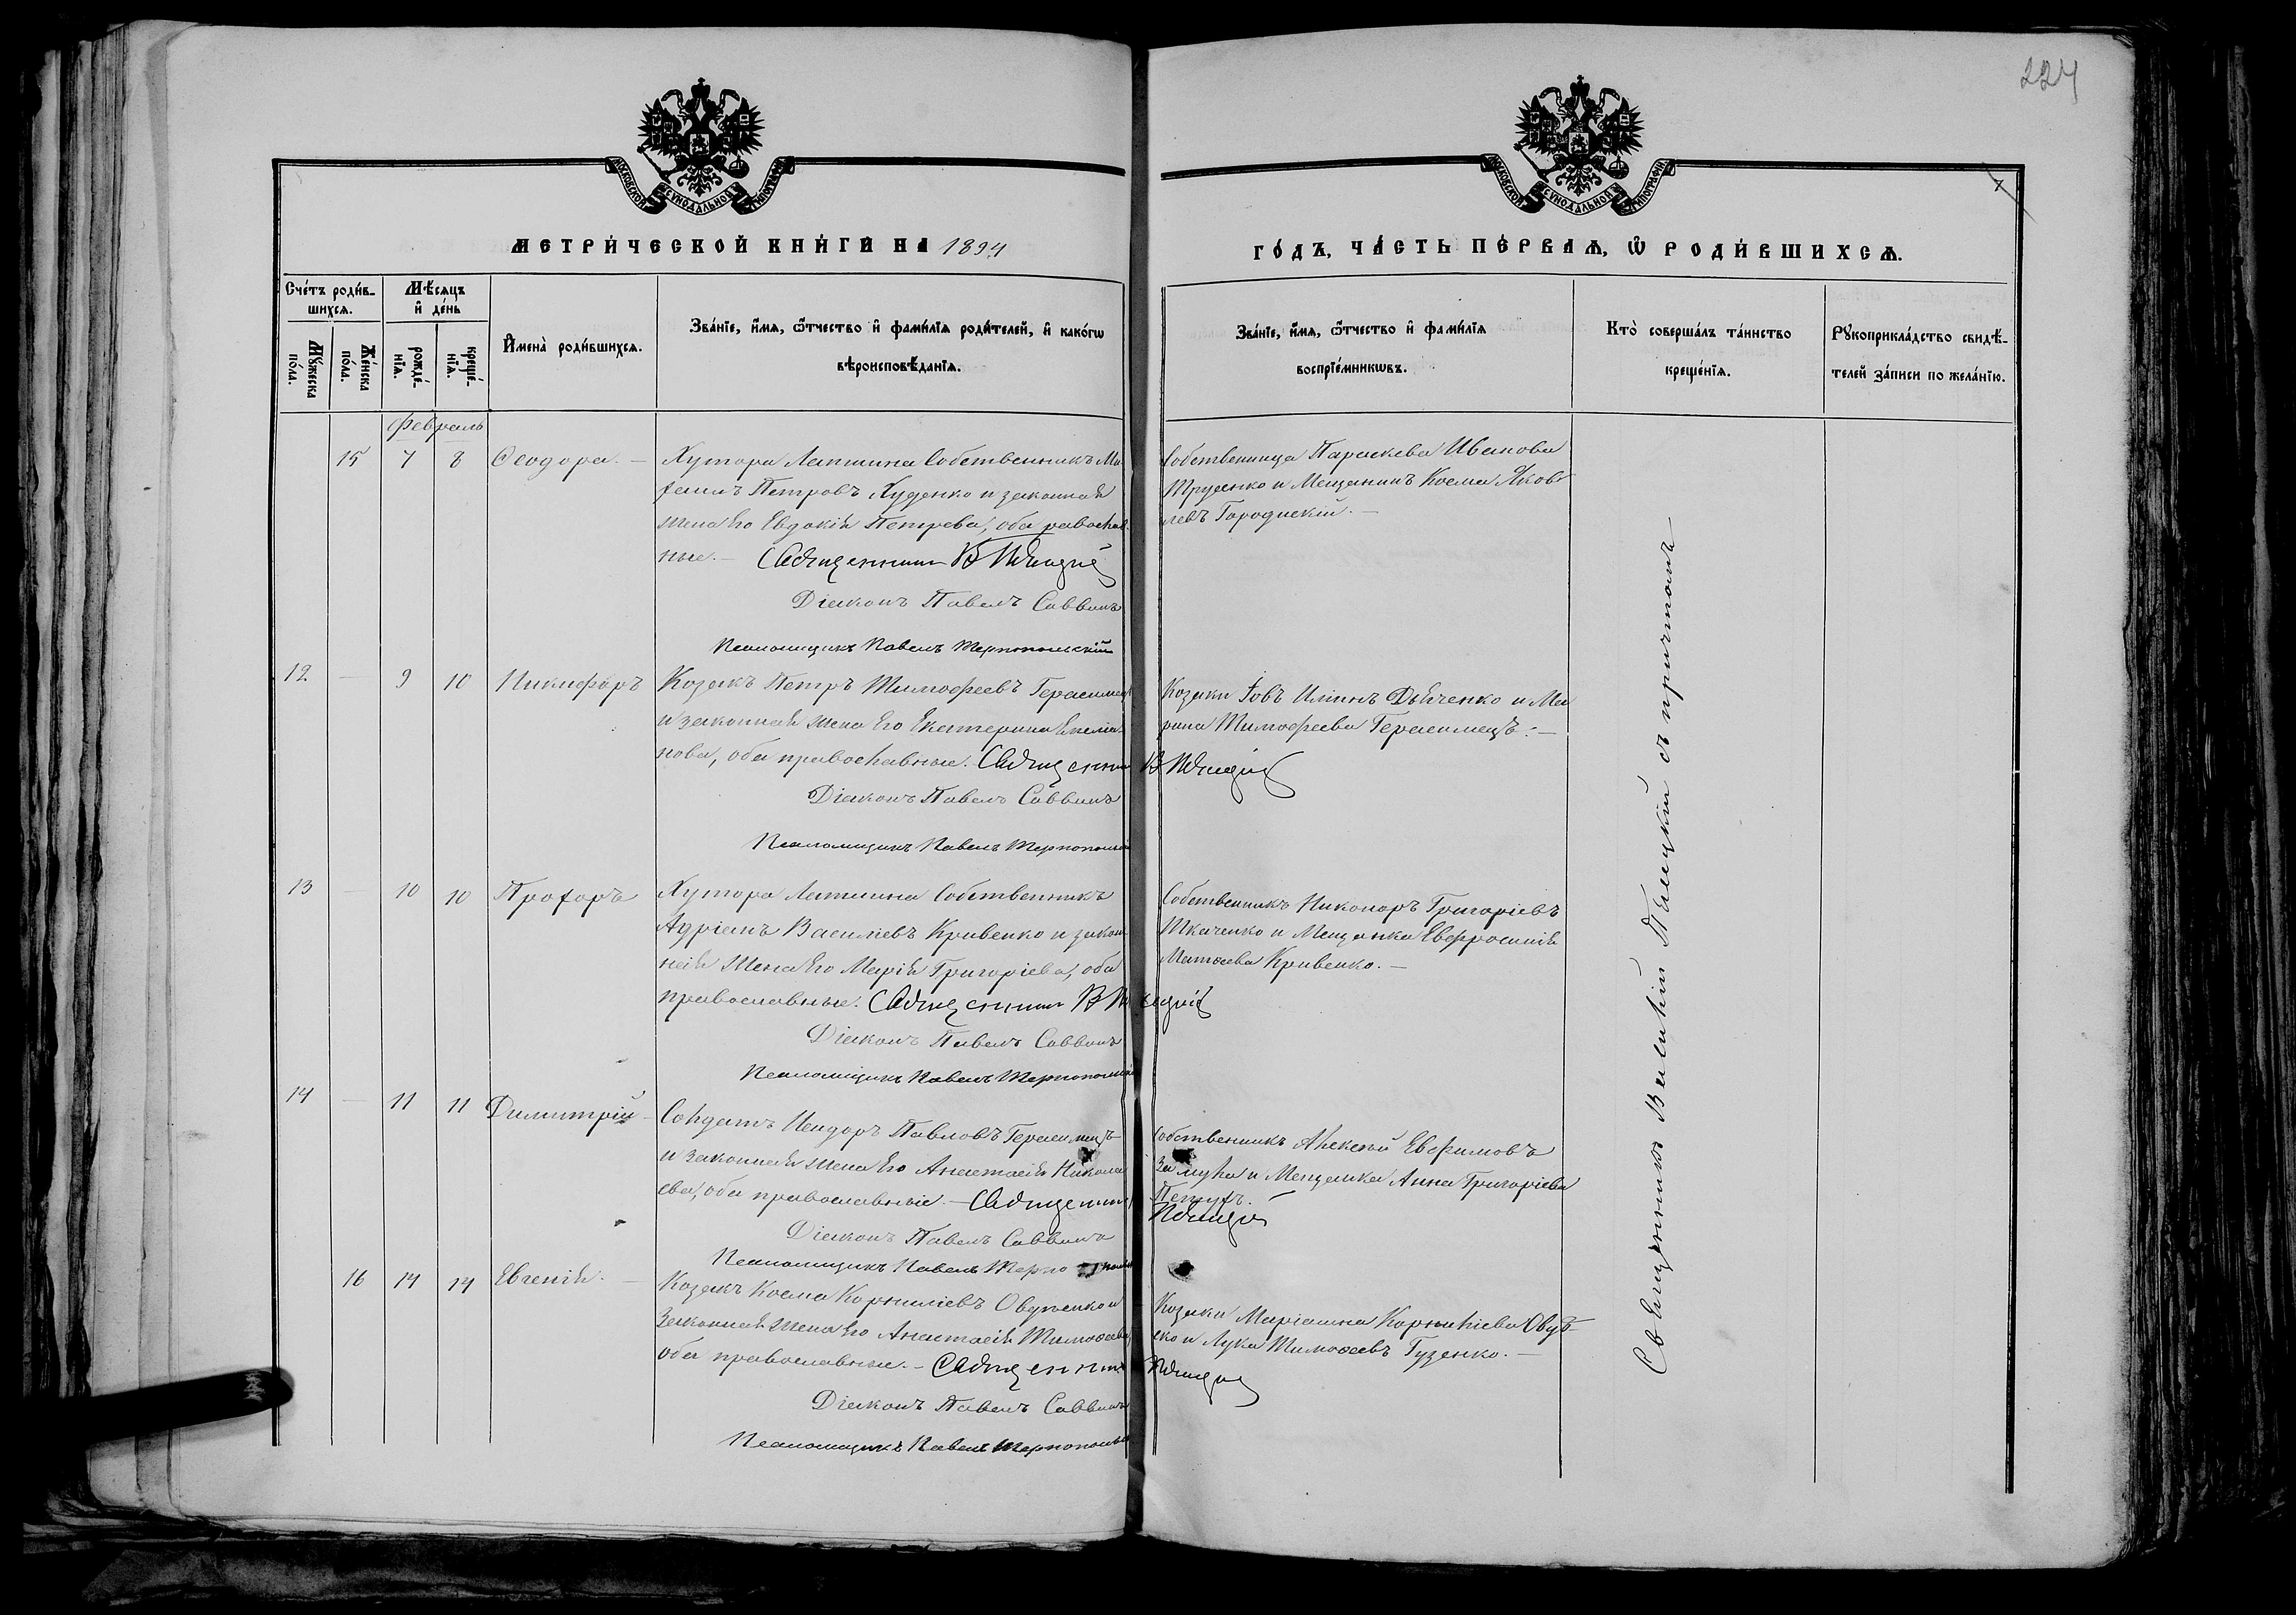 224
7
МОСКОВСКОЙ СУНОДАЛЬНОЙ ТИПОГРАФІИ
МОСКОВСКОЙ СУНОДАЛЬНОЙ ТИПОГРАФІИ
МЕТРИ́ЧЕСКОЙ КНИ́ГИ НА 1894
ГО́ДЪ, ЧА́СТЬ ПЕ́РВАѦ, Ѿ РОДИ́ВШИХСѦ.
Сче́тъ роди́в-
шихсѧ.
Мѣ́сѧцъ
и҆ де́нь
Мꙋ́жеска
по́ла.
Же́нска
по́ла.
рожде́-
нїѧ.
креще́-
нїѧ.
И҆мена̀ роди́вшихсѧ.
Зва́нїе, и҆́мѧ, ѿтчество и҆ фами́лїѧ роди́телей, и҆ како́гѡ
вѣроисповѣ́данїѧ.
Зва́нїе, и҆́мѧ, ѿтчество и҆ фами́лїѧ
воспрїе́мникѡвъ.
Кто̀ соверша́лъ та́инство
креще́нїѧ.
Рꙋкоприкла́дство свидѣ́-
телей за́писи по жела́нїю.
Февраль
15 7 8 Ѳеодора. — Хутора Лапшина Собственникъ Ми-
хаилъ Петровъ Худенко и законная
жена его Евдокія Петрова, оба равослав-
ные. — Священникъ В
Діаконъ Павелъ Саввинъ
Псаломщикъ Павелъ Тернопольскій
Собственница Параскева Иванова
Трусенко и Мещанинъ Косма Яков-
левъ Городискій. —
12 — 9 10 Никифоръ Козакъ Петръ Тимофеевъ Герасимецъ
и законная жена его Екатерина Емелiа-
нова, оба православные. Священникъ В
Діаконъ Павелъ Саввинъ
Псаломщикъ Павелъ Тернополь
Козаки Іовъ Илiинъ Дьяченко и Ма
рина Тимофеева Герасимецъ. —
13 — 10 10 Прохоръ Хутора Лапшина Собственникъ
Адріанъ Василіевъ Кривенко и закон
ная жена его Марія Григоріева, оба
православные. Священникъ В
Діаконъ Павелъ Саввинъ
Псаломщикъ Павелъ Тернопольск
Собственникъ Никоноръ Григоріевъ
Ткаченко и Мещанка Евфросинія
Матѳеева Кривенко. —
14 — 11 11 Димитрій — Солдатъ Исидоръ Павловъ Герасимецъ
и законная жена его Анастасія Никола
ева, оба православные — Священникъ
Діаконъ Павелъ Саввинъ
Псаломщикъ Павелъ Терно поль
Собственникъ Алексѣй Евфимовъ
Замула и Мещанка Анна Григоріева
Петухъ.
16 14 14 Евгенія. — Козакъ Косма Корниліевъ Овдіенко и
законная жена его Анастасія Тимоѳеева
оба православные. — Священникъ
Діаконъ Павелъ Саввинъ
Псаломщикъ Павелъ Тернополь
Козаки Маріанна Корниліева
и Лука Тимоѳеевъ Гузенко. —
Священникъ Василій Палецкій съ причтомъ